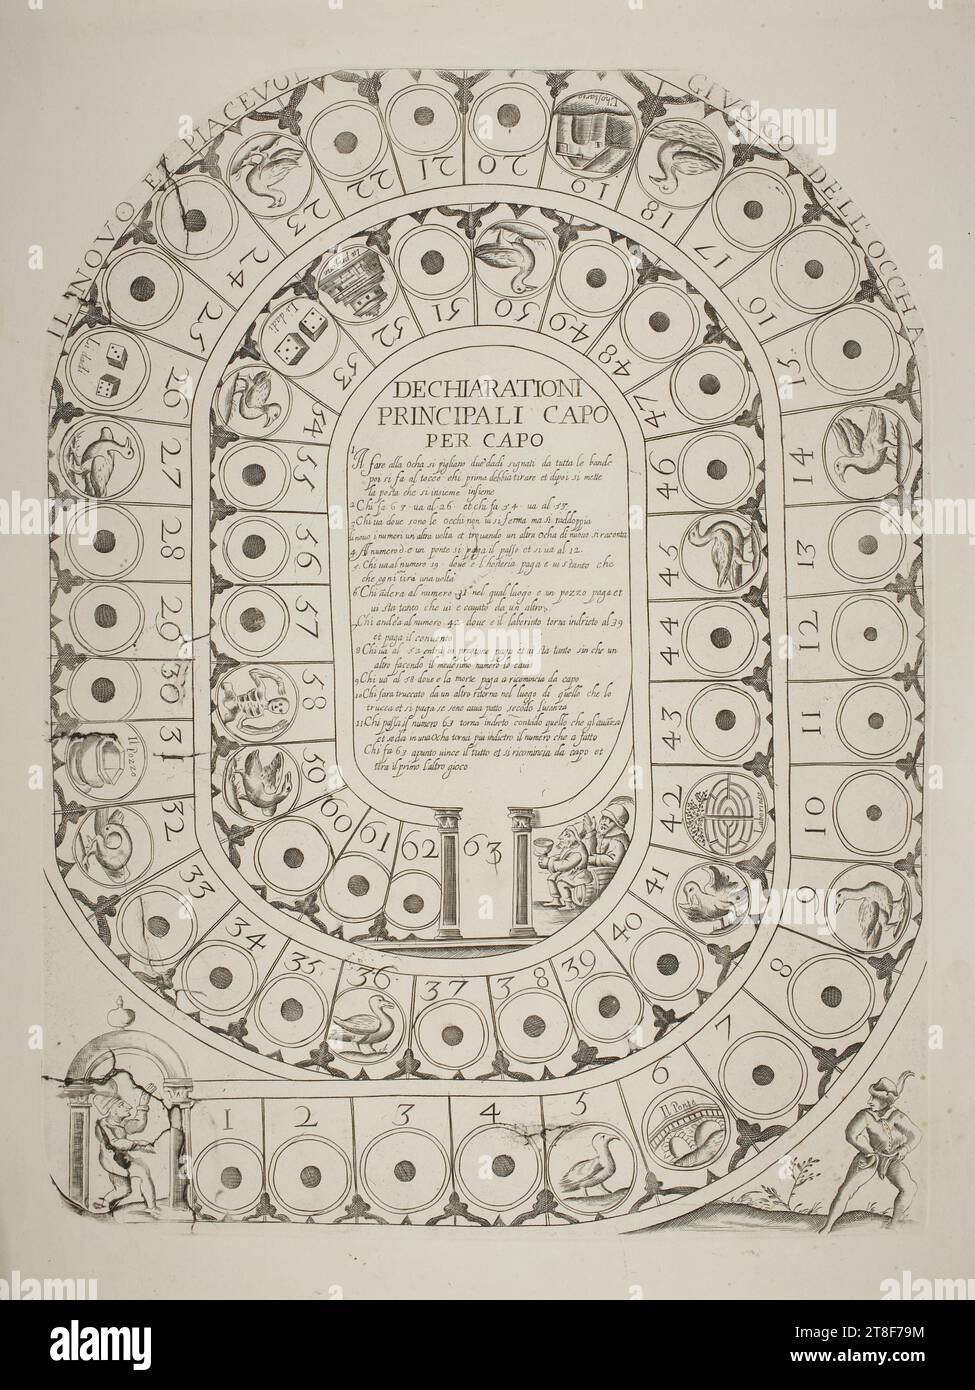 IL NUOVO ET PIACEVOL GIVOCO DELL'OCCHA
DECHIARATIONI
PRINCIPALI CAPO
PER CAPO
1 A fare alla Ocha si pigliano due dadi signati da tutta le bande
poi si fa al tocco chi prima debbia tirare et dipoi si mette
la posta che si insieme
2 Chi fa 63 va al 26 et chi fa 54 va al 53
3 Chi va dove sono le Occhi non vi si ferma ma si raddoppia
di novo i numeri un altra volta et trovando un altra Ocha di nuovo si raconta
4 A numero 6 e un ponte si paga il passo et si va al 12
5 Chi va al numero 19 dove e l'hosteria paga e vi stanto che
che ogni tira una volta
6 Chi andera al numero 31 nel qual luogo e un pozzo paga et
vi sta tanto che vi e cavato da un altro
7 Chi andera al numero 42 dove e il laberinto torna indrieto al 39
et paga il convento
8 Chi va al 52 entra in pregione paga et vi sta tanto sin che un
altro facendo il medesimo numero lo cavi
9 Chi va al 58 dove e la morte paga a ricomincia da capo
10 Chi sara truccato da un altro ritorna nel luogo di quello che lo
trucca et si paga se sene cava patto secodo
11 Chi passa il numero 63 torna indieto contado quello che gl'avaza
et se da in una Ocha torna piu indietro il numero che a fatto
Chi fa 63 apunto vince il tutto et si ricomincia da capo et
tira il primo l'altro gioco
1
2
3
4
5
6
Il Ponte
7
8
9
10
11
12
13
14
15
16
17
18
19
L'hostaria
20
21
22
23
24
25
26
Li dadi
27
28
29
30
31
Il Pozzo
32
33
34
35
36
37
38
39
40
41
42
Laberinto
43
44
45
46
47
48
49
50
51
52
53
Li dadi
54
55
56
57
58
59
60
61
62
63
alamy
Image ID: 2T8F79M
www.alamy.com